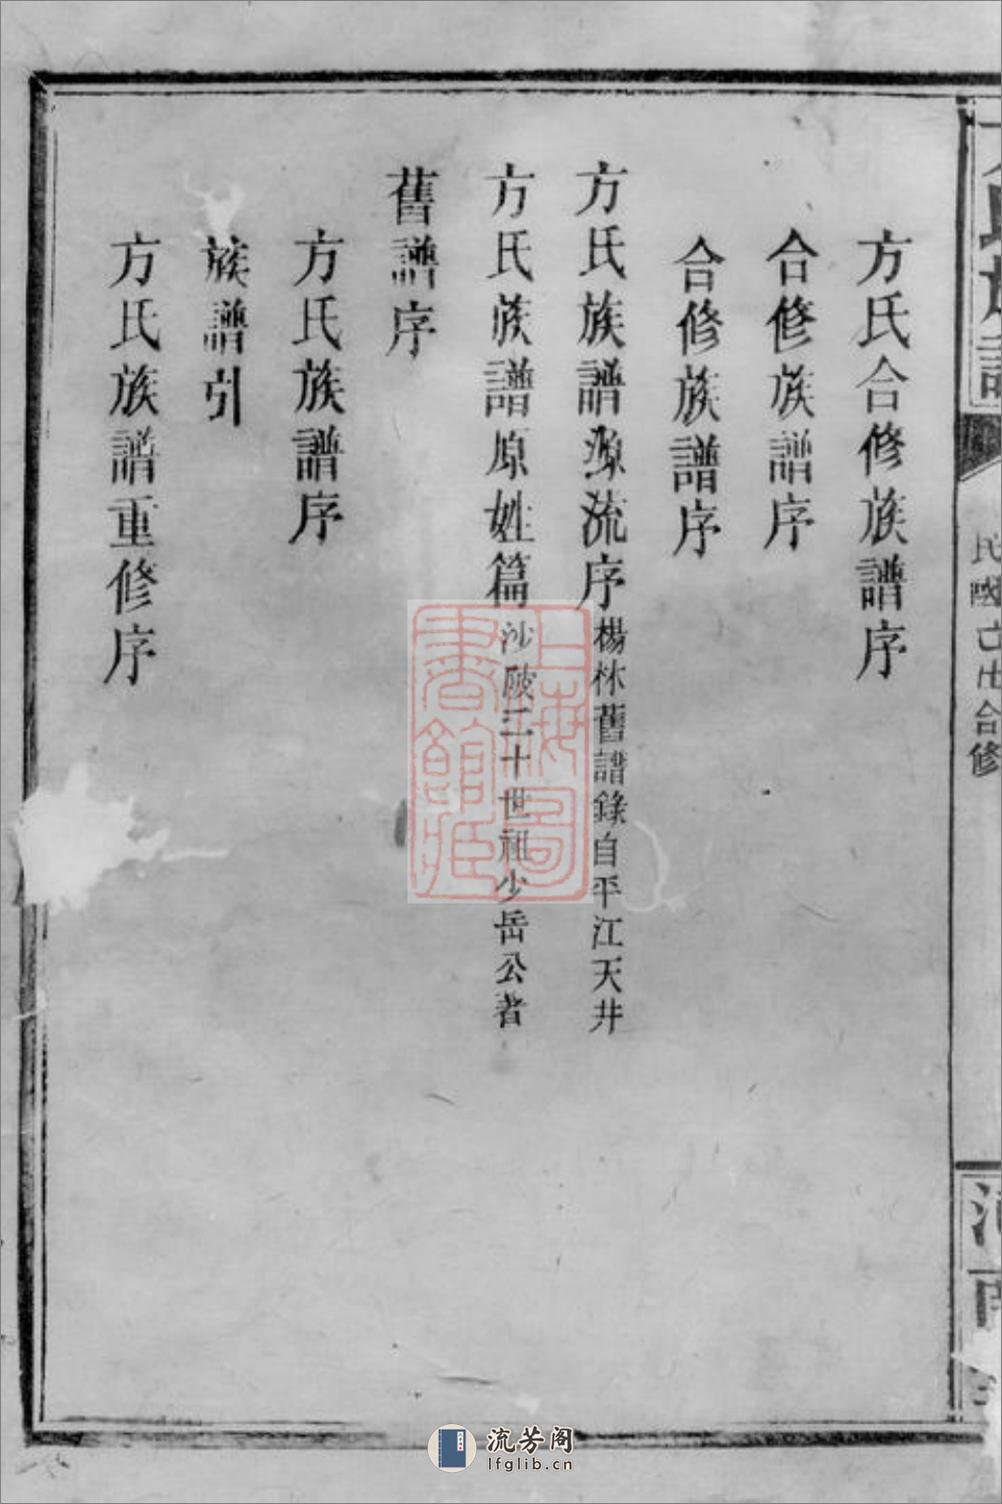 方氏族譜
民國亡出合修
方氏合修族譜序
合修族譜序
合修族譜序
方氏族譜源流序楊林舊譜錄自平江天井
方氏族譜原姓篇沙陂二十世祖少岳公著
舊譜序
方氏族譜序
族譜引
方氏族譜重修序
上海圖書館藏
流芳阁
lfglib.cn